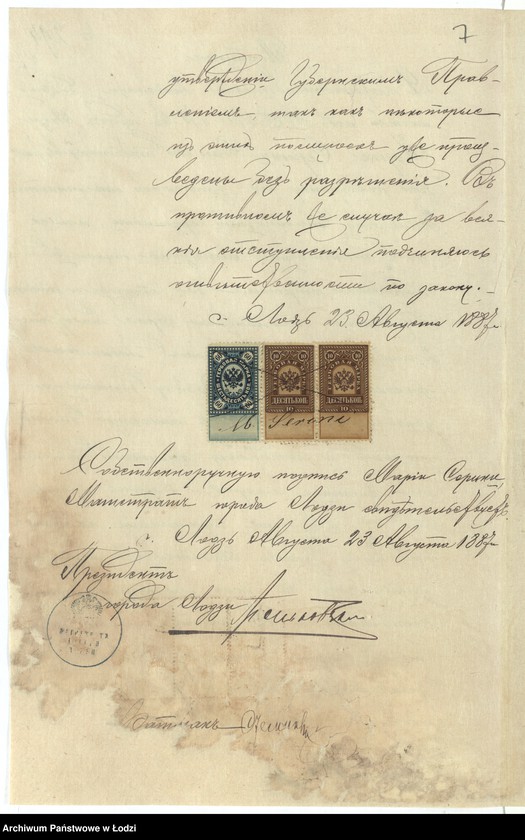 7
утвержденія Губернскимъ Прав-
леніемъ, такъ какъ нѣкоторые
изъ нихъ уже произ-
ведены безъ разрѣшенія. Въ
противномъ же случаѣ за вся-
кія отступленія подчиняюсь
отвѣтственности по закону.
г. Лодзь 23 Августа 1887 г.
60 60 10 10 10 10
ДЕСЯТЬ КОП. ДЕСЯТЬ КОП.
10 10
M.
Собственноручную подпись Маріи
Магистратъ города Лодзи свидѣтельствуетъ.
г. Лодзь Августа 23 Августа 1887 г.
Президентъ
города Лодзи
Archiwum Państwowe w Łodzi